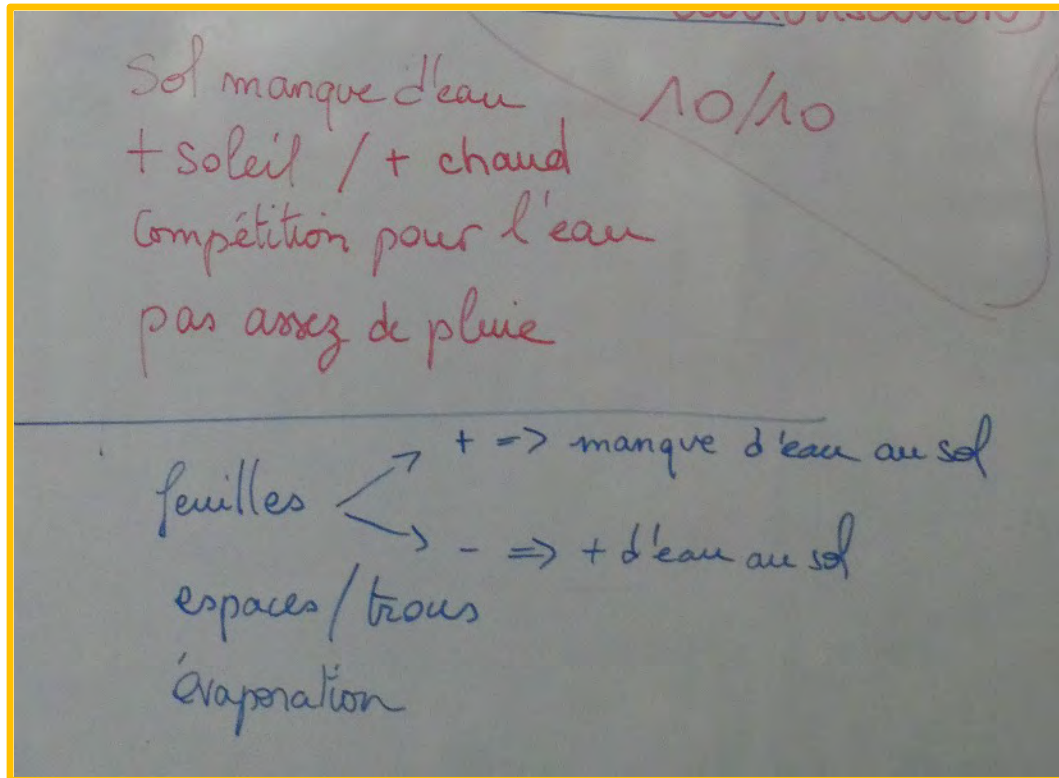 Sol manque d'eau
10/10
+ soleil / + chaud
Compétition pour l'eau
pas assez de pluie
feuilles
+ => manque d'eau au sol
- => + d'eau au sol
espaces / trous
évaporation